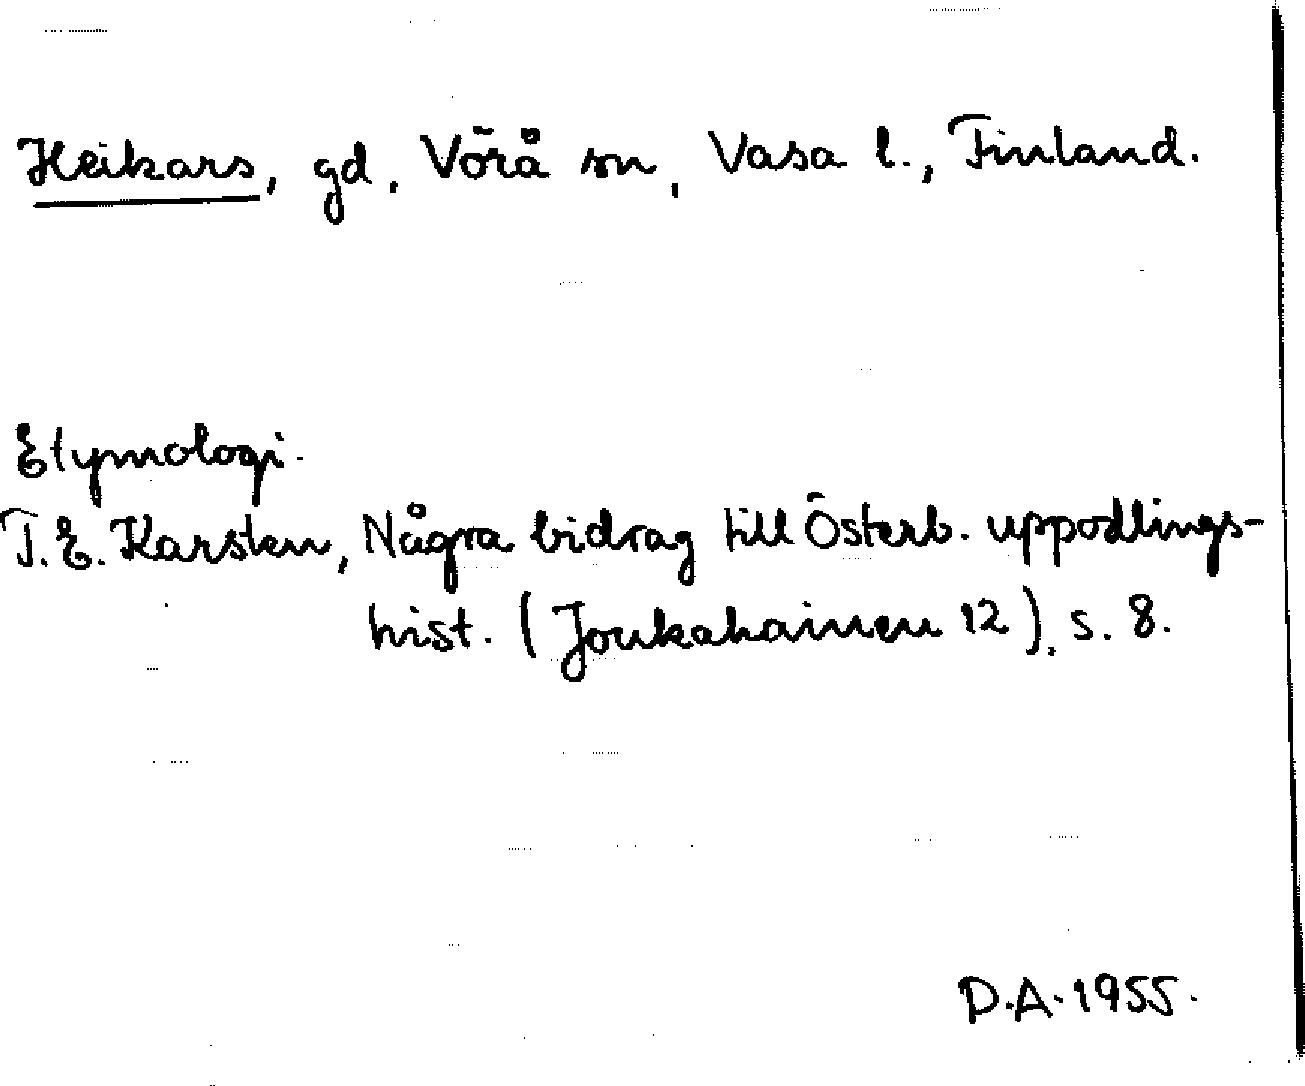 Heikars, gd, Vörå sn, Vasa l., Finland.
Etymologi.
T. E. Karsten, Några bidrag till Österb. uppodlings-
hist. (Joukahainen 12), s. 8.
D.A. 1955.